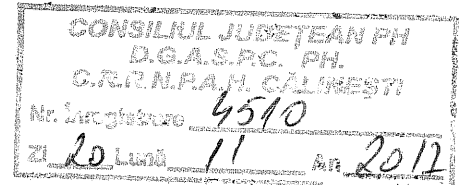 CONSILIUL JUDEȚEAN PH
D.G.A.S.P.C. PH.
C.R.R.N.P.A.H. CĂLINEȘTI
Nr. Înregistrare 4510
Zi 20 Lună 11 An 2012